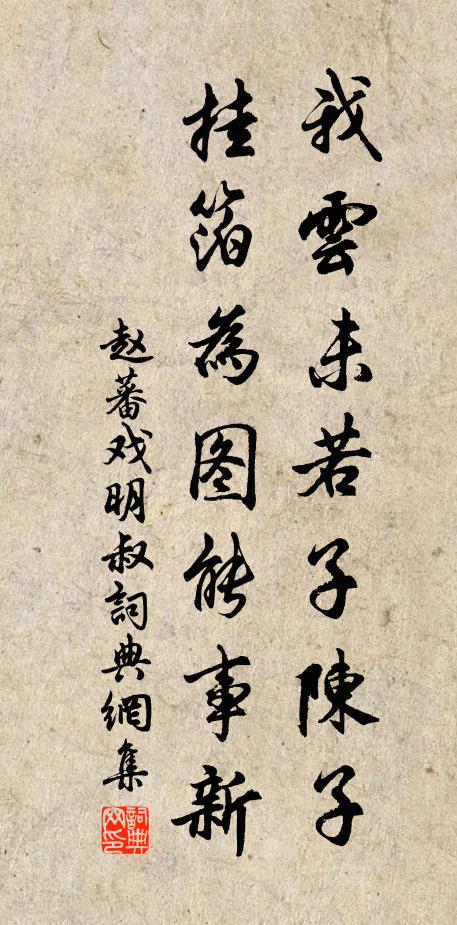 我雲未若子陳子
挂箔為图能事新
赵蕃戏明叔詞典網集
詞典网印